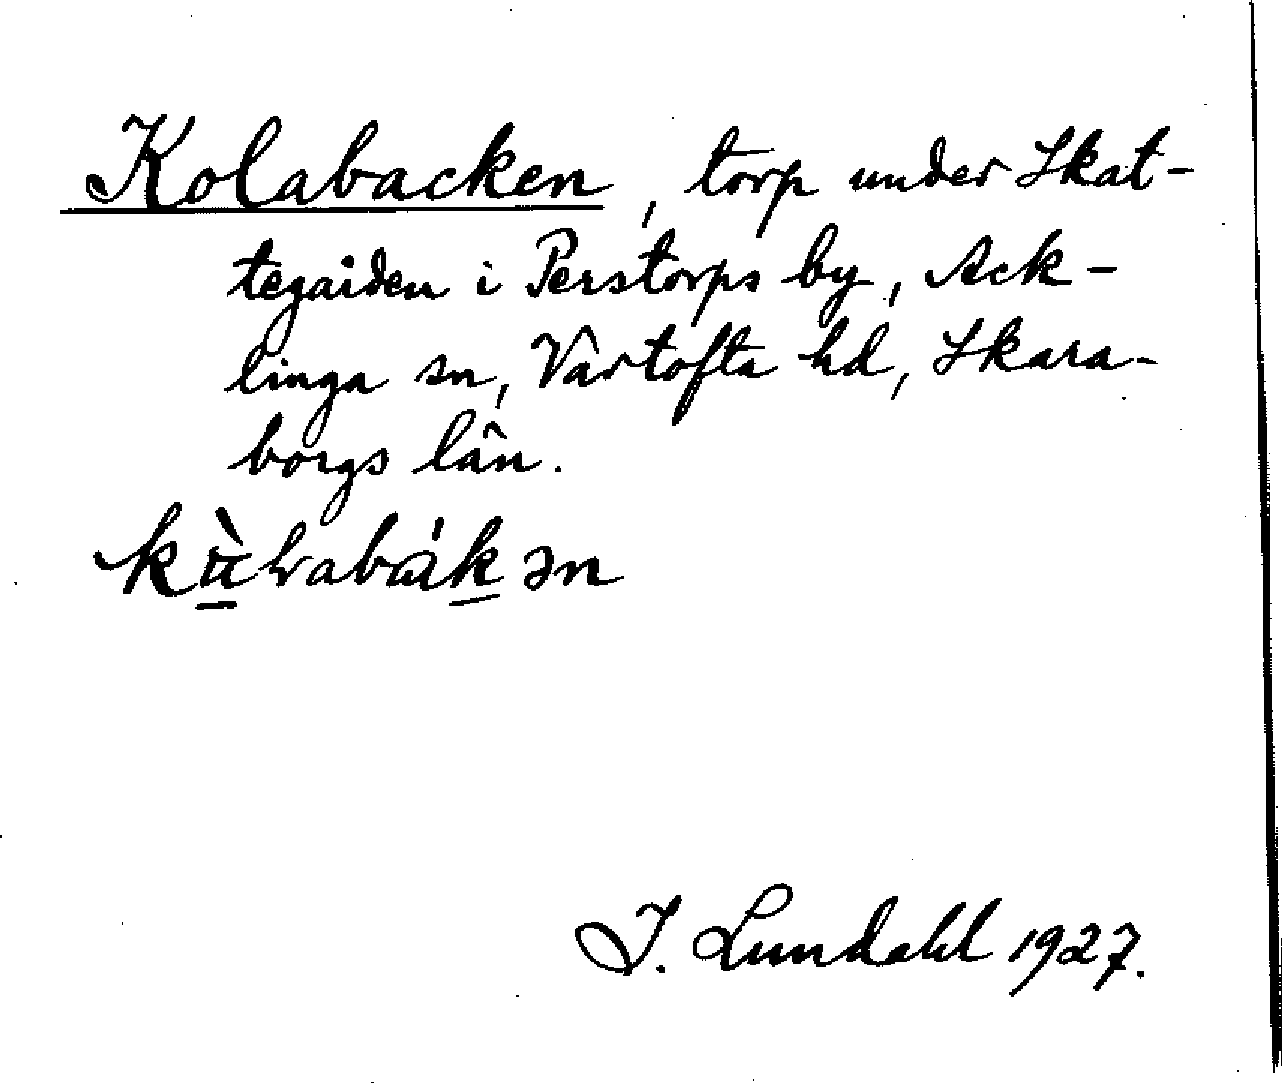 Kolabacken, torp under Skat-
tegården i Perstorps by, Ack-
linga sn, Vartofta hd, Skara-
borgs län.
J. Lundahl 1927.